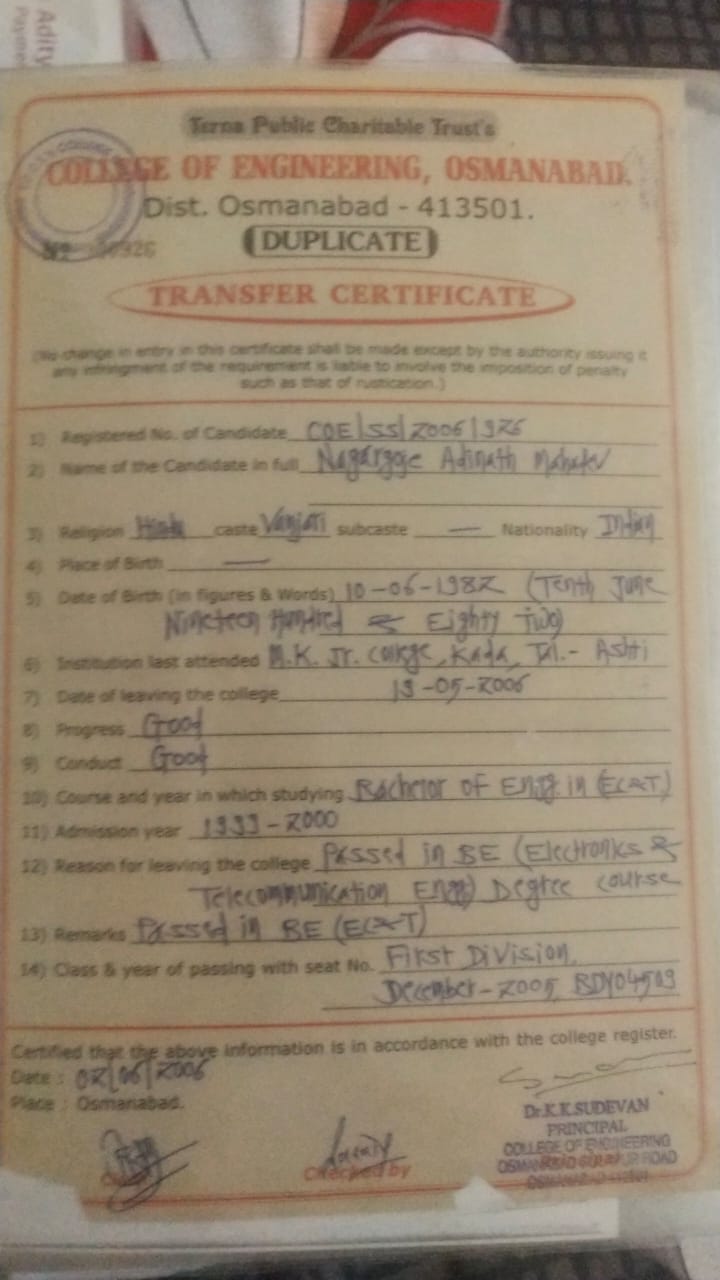 Adity
Payme
Terna Public Charitable Trust's
COLLEGE OF ENGINEERING, OSMANABAD.
Dist. Osmanabad - 413501.
No 926
DUPLICATE
TRANSFER CERTIFICATE
(No change in entry in this certificate shall be made except by the authority issuing it
any infringment of the requirement is liable to involve the imposition of penalty
such as that of rustication.)
1) Registered No. of Candidate COE/SS/2006/926
2) Name of the Candidate in full Nagargoje Adinath Mahadev
3) Religion Hindu caste Vanjari subcaste — Nationality Indian
4) Place of Birth —
5) Date of Birth (in figures & Words) 10-06-1982 (Tenth June
Nineteen Hundred & Eighty Two)
6) Institution last attended M.K. Jr. College, Kada, Tal.- Ashti
7) Date of leaving the college 19-05-2006
8) Progress Good
9) Conduct Good
10) Course and year in which studying Bachelor of Engg. in (EC&T)
11) Admission year 1999-2000
12) Reason for leaving the college Passed in BE (Electronics &
Telecommunication Engg) Degree course
13) Remarks Passed in BE (EC&T)
14) Class & year of passing with seat No. First Division,
December-2005, BDY04509
Certified that the above information is in accordance with the college register.
Date : 02/06/2006
Place : Osmanabad.
Dr.K.K.SUDEVAN
PRINCIPAL
COLLEGE OF ENGINEERING
ROAD
Checked by